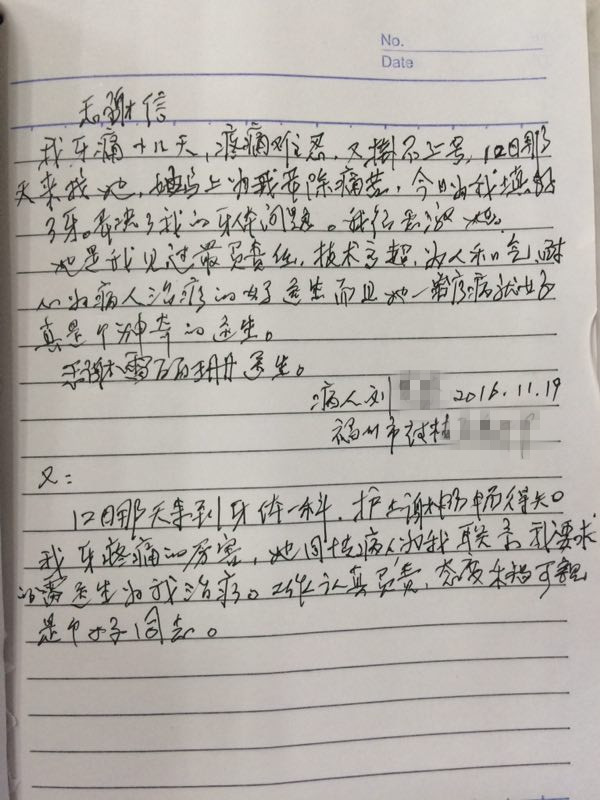 No.
Date
感谢信
我牙痛十几天,疼痛难忍,又挂不上号,12日那
天来找她,她马上为我带除痛苦,今日为我填好
了牙。解决了我的牙体问题。我很感激她。
她是我见过最负责任,技术高超,为人和气,耐
心为病人治疗的好医生而且她一治疗病就好
真是个神奇的医生。
感谢雷丽珊医生。
病人刘 2016.11.19
福州市
又:
12日那天来到牙体一科,护士谢畅得知
我牙疼痛的厉害,她同情病人为我联系我要求
的雷医生为我治疗。工作认真负责,态度和蔼可亲
是个好同志。